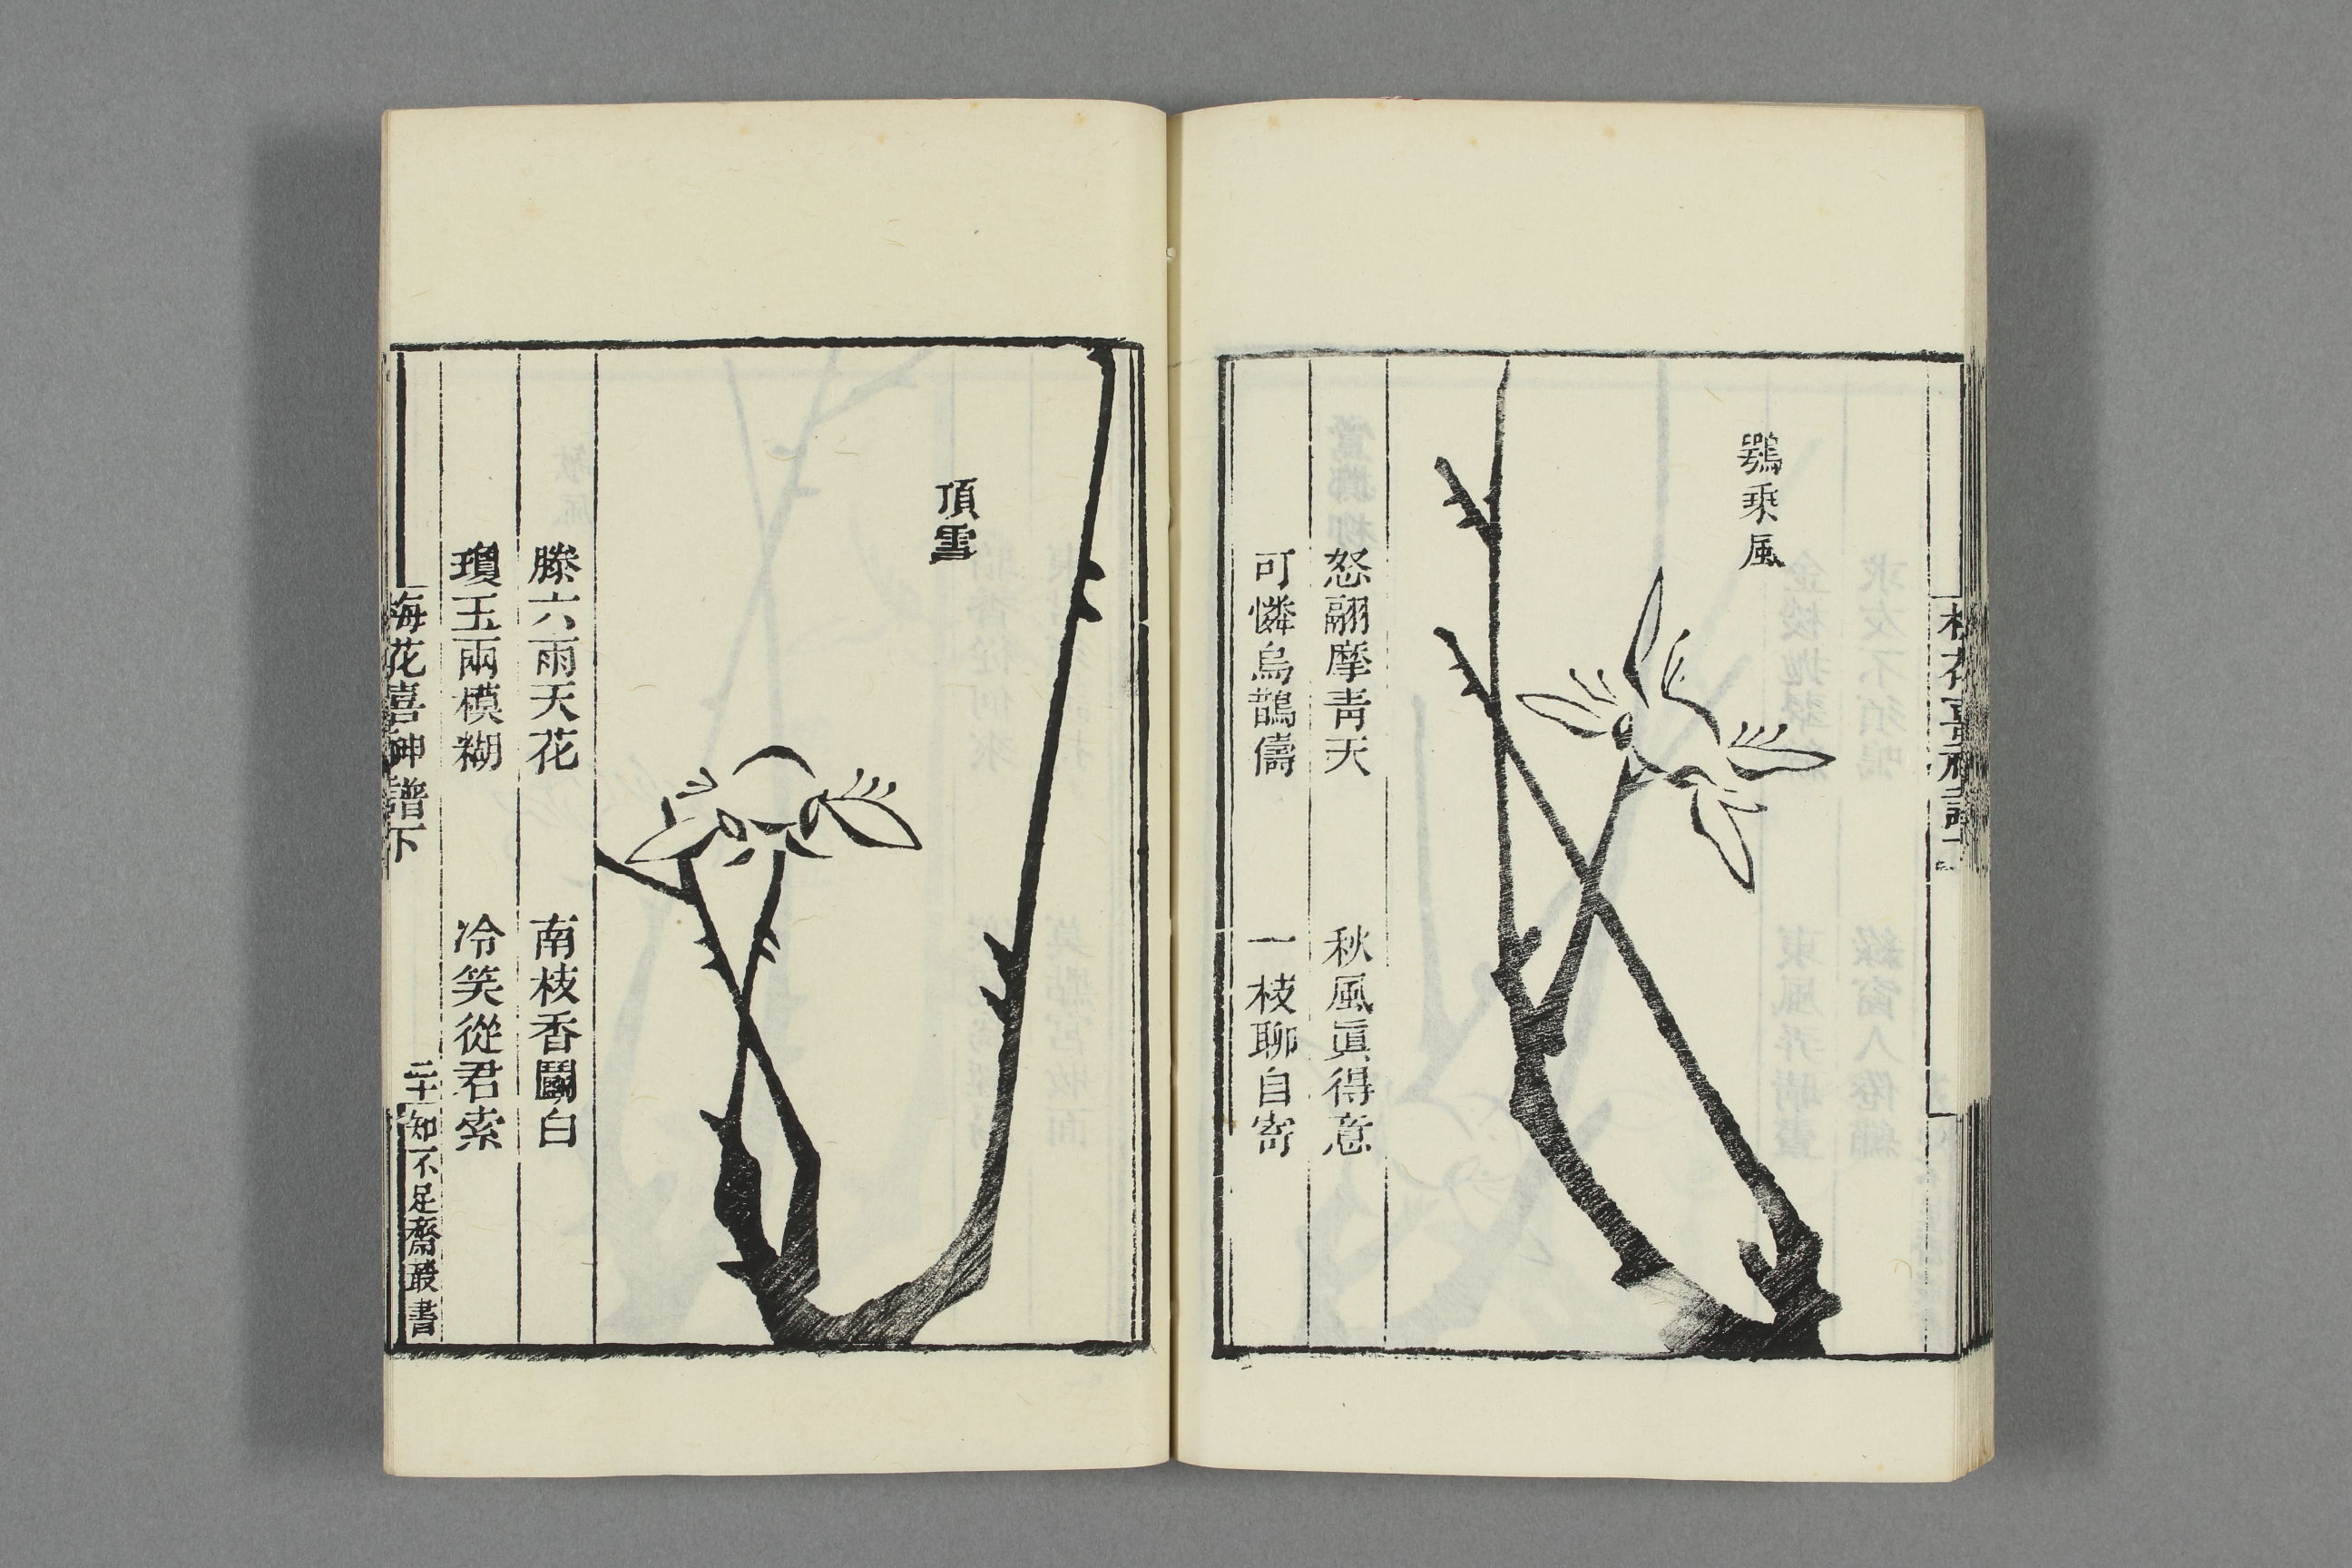 鶚乘風
怒翮摩青天　秋風眞得意
可憐烏鵲儔　一枝聊自寄
頂雪
滕六雨天花　南枝香鬬白
瓊玉兩模糊　冷笑從君索
梅花喜神譜下　二十　知不足齋叢書